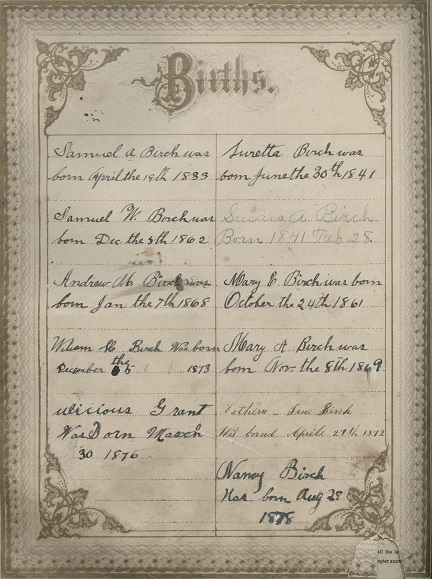 Births.
Samuel A Birch was
born April the 19th 1833
Samuel W. Birch was
born Dec. the 8th 1862
Andrew M. Birch was
born Jan the 7th 1868
William H. Birch Was born
December the 1873
Grant
Was Born March
30 1876
Suretta Birch was
born June the 30th 1841
A. Birch
Born 1841 Feb 28
Mary E. Birch was born
October the 24th 1861
Mary A Birch was
born Nov. the 8th 1869
Jane Birch
Was borned Aprile 27th 1872
Nancy Birch
Was born Aug 28
1878